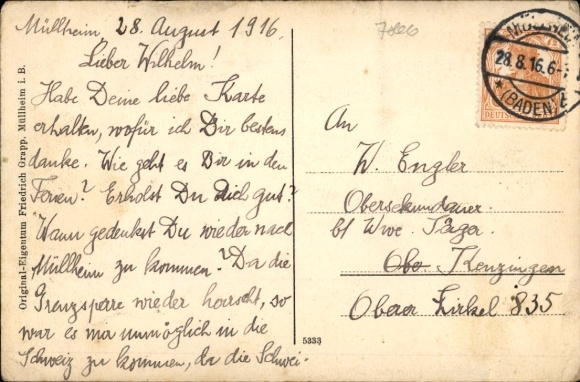 Müllheim, 28. August 1916.
Lieber Wilhelm!
Habe Deine liebe Karte
erhalten, wofür ich Dir bestens
danke. Wie geht es Dir in den
Ferien? Erholst Du Dich gut?
Wann gedenkst Du wieder nach
Müllheim zu kommen? Da die
Grenzsperre wieder herrscht, so
war es mir unmöglich in die
Schweiz zu kommen, da die Schwei-
Original-Eigentum Friedrich Grapp, Müllheim i. B.
5333
28.8.16.6-7
*(BADEN)
An
W. Engler
Obersekundaner.
bf Wwe. Jäger.
Obe Kenzingen
Oberer Zirkel 835